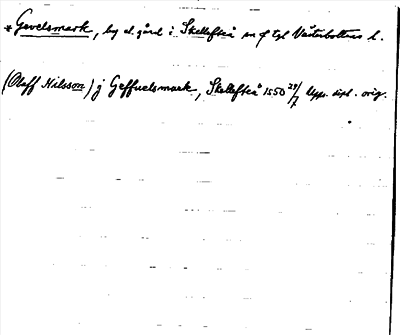 * Gevelsmark, by el. gård i Skellefteå sn f tgl Västerbottens l.
(Olaff Nilsson) j Geffuelsmark, Skellefteå 1550 29/7 Upps. dipl. orig.